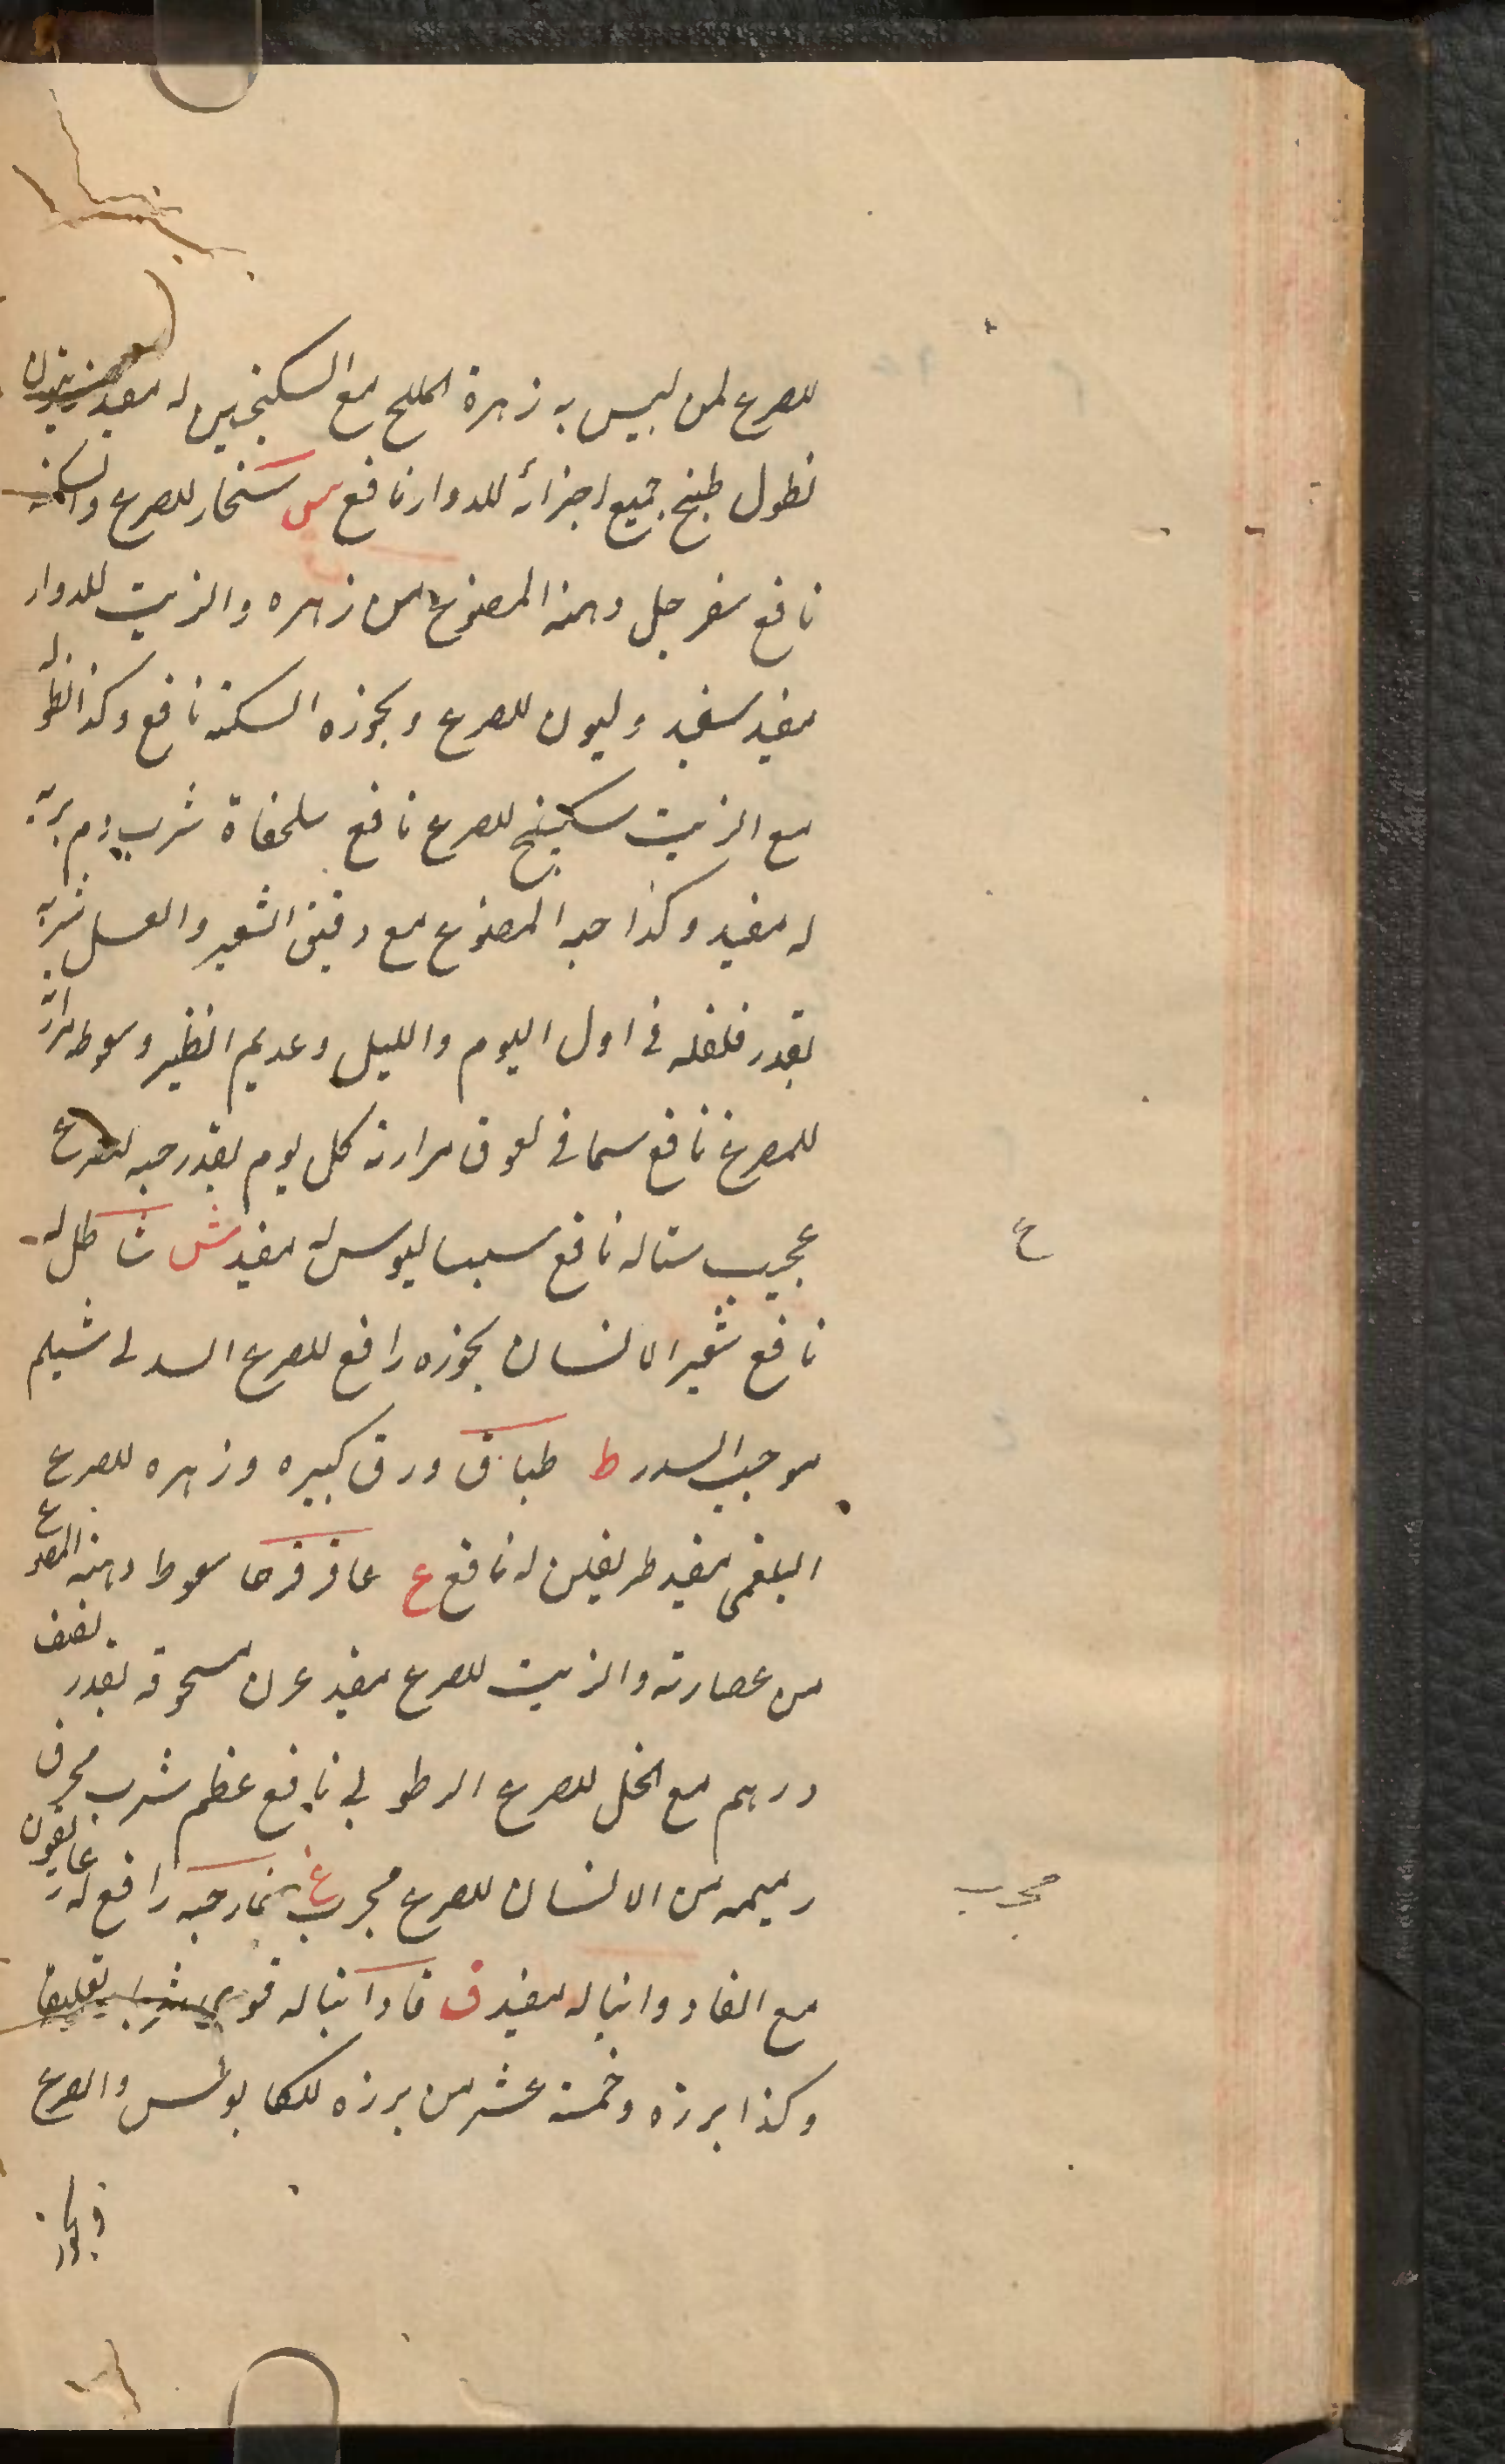 للصرع لمن ليس به زهرة الملح مع السكنجبين له مفيد زيتون
نطول طبخ جميع اجزائه للدوار نافع س سنجار للصرع والسكته
نافع سفرجل دهنه المصنوع من زهره والزيت للدوار
مفيد سفيد وليون للصرع وبخوره السكته نافع وكذا نطوله
مع الزيت سكبينج للصرع نافع سلحفاة شرب دم بريه
له مفيد وكذا حبه المصنوع مع دقيق الشعير والعسل شربه
بقدر فلفله فى اول اليوم والليل وعديم النظير وسعوط مرارته
للصرع نافع سمانى لعوق مرارته كل يوم بقدر حبه للصرع
عجيب ستاله نافع سيساليوس له مفيد ش شاطل له
نافع شعير الانسان بخوره رافع للصرع السدلى شيلم
موجب السدر ط طباق ورق كبيره وزهره للصرع
البلغمى مفيد طريفلن له نافع ع عاقرقرحا سعوط دهنه المصنوع
من عصارته والزيت للصرع مفيد عرن مسحوقه بقدر نصف
درهم مع الخل للصرع الرطوبى نافع عظم شرب محرق
رميمه من الانسان للصرع مجرب غ غار حبه رافع له غاريقون
مع الفاوانيا له مفيد ف فاوانيا له قوى شربا تعليقا
وكذا برزه وخمسة عشر من برزه للكابوس والصرع
وبخوره
ع
مجرب